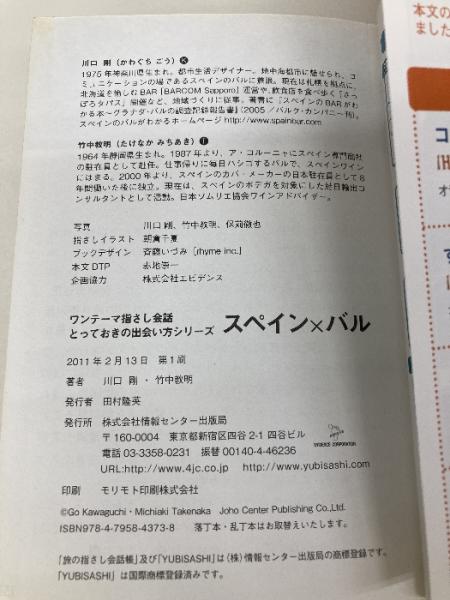 川口 剛(かわぐち ごう)K
1975年神奈川県生まれ。都市生活デザイナー。地中海都市に魅せられ、コ
ミュニケーションの場であるスペインのバルに着眼。現在は札幌を拠点に、
北海道を愉しむBAR「BARCOM Sapporo」運営や、飲食店を食べ歩く「さっ
ぽろタパス」開催など、地域づくりに従事。著書に『スペインのBARがわ
かる本〜グラナダ・バルの調査記録報告書』(2005/バルク・カンパニー刊)。
スペインのバルがわかるホームページ http://www.spainbar.com
竹中教明(たけなか みちあき)T
1964年静岡県生まれ。1987年より、ア・コルーニャにスペイン専門商社
の駐在員として赴任。仕事帰りに毎日ハシゴするバルで、スペインワイン
にはまる。2000年より、スペインのカバ・メーカーの日本駐在員として8
年間働いた後に独立。現在は、スペインのボデガを対象にした対日輸出コ
ンサルタントとして活動。日本ソムリエ協会ワインアドバイザー。
写真 川口 剛、竹中教明、保前徹也
指さしイラスト 朝倉千夏
ブックデザイン 斉藤いづみ[rhyme inc.]
本文DTP 赤地崇一
企画協力 株式会社エビデンス
ワンテーマ指さし会話
とっておきの出会い方シリーズ スペイン×バル
2011年2月13日 第1刷
著者 川口 剛・竹中教明
発行者 田村隆英
発行所 株式会社情報センター出版局
〒160-0004 東京都新宿区四谷2-1 四谷ビル
電話03-3358-0231 振替00140-4-46236
URL:http://www.4jc.co.jp http://www.yubisashi.com
EVIDENCE CORPORATION
印刷 モリモト印刷株式会社
©Go Kawaguchi・Michiaki Takenaka Joho Center Publishing Co.,Ltd.
ISBN978-4-7958-4373-8 落丁本・乱丁本はお取替えいたします。
「旅の指さし会話帳」及び「YUBISASHI」は(株)情報センター出版局の商標登録です。
「YUBISASHI」は国際商標登録済みです。
本文の
ました